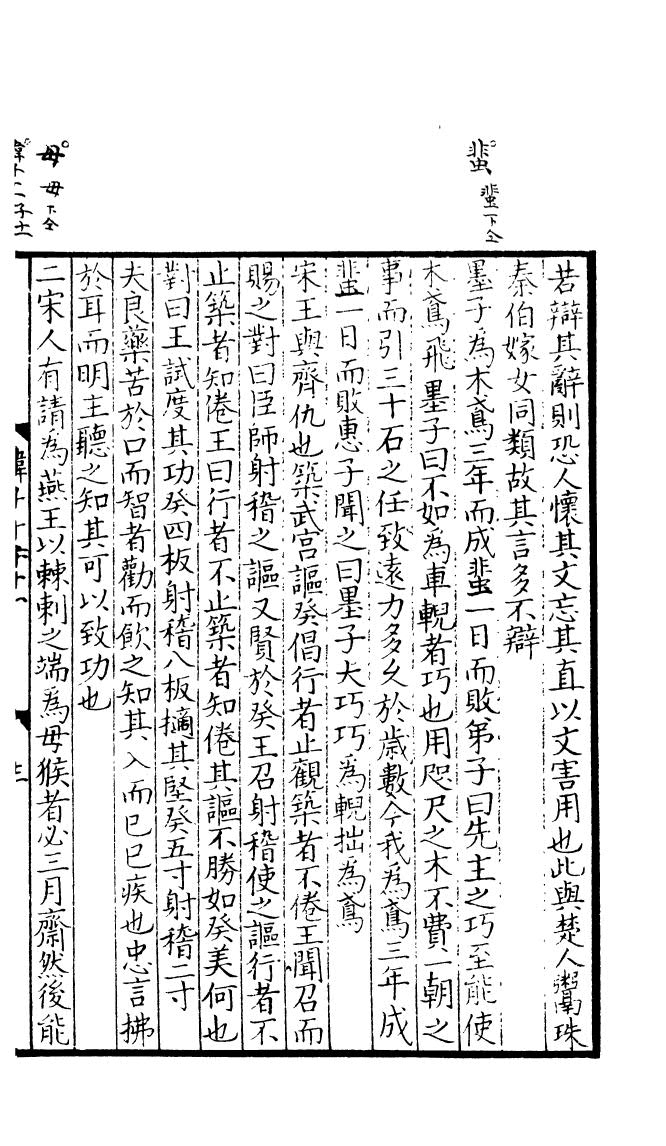 蜚 蜚下仝
若辯其辭則恐人懷其文忘其直以文害用也此與楚人鬻珠
秦伯嫁女同類故其言多不辯
墨子為木鳶三年而成蜚一日而敗弟子曰先生之巧至能使
木鳶飛墨子曰不如為車輗者巧也用咫尺之木不費一朝之
事而引三十石之任致遠力多久於歲數今我為鳶三年成
蜚一日而敗惠子聞之曰墨子大巧巧為輗拙為鳶
宋王與齊仇也築武宮謳癸倡行者止觀築者不倦王聞召而
賜之對曰臣師射稽之謳又賢於癸王召射稽使之謳行者不
止築者知倦王曰行者不止築者知倦其謳不勝如癸美何也
對曰王試度其功癸四板射稽八板擿其堅癸五寸射稽二寸
夫良藥苦於口而智者勸而飲之知其入而已已疾也忠言拂
於耳而明主聽之知其可以致功也
母 毋下仝
二宋人有請為燕王以棘刺之端為母猴者必三月齋然後能